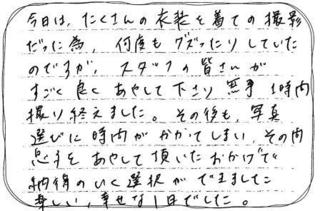 今日は、たくさんの衣装を着ての撮影
だった為、何度もグズったりしていた
のですが、スタッフの皆さんが
すごく良くあやして下さり無事1時間
撮り終えました。その後も、写真
選びに時間がかかてしまい、その間
息子をあやして頂いたおかげで
納得のいく選択ができました
楽しい、幸せな1日でした。